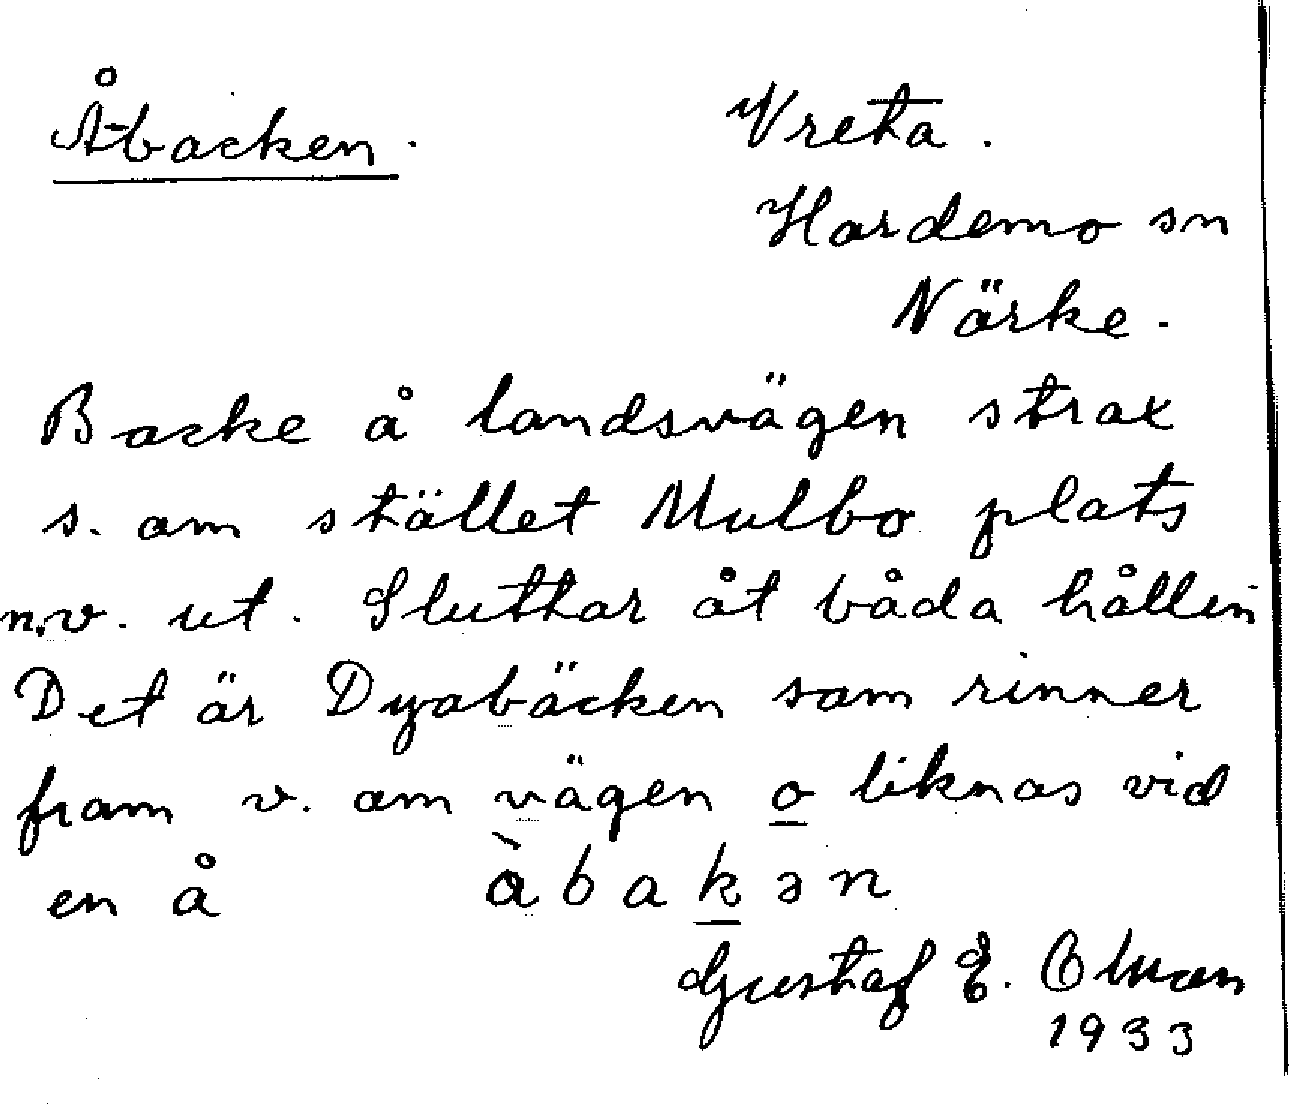 Åbacken.
Vreta.
Hardemo sn
Närke.
Backe å landsvägen strax
s. om stället Mulbo plats
n.v. ut. Sluttar åt båda hållen
Det är Dyabäcken som rinner
fram v. om vägen o liknas vid
en å
åbakən
Gustaf E.
1933